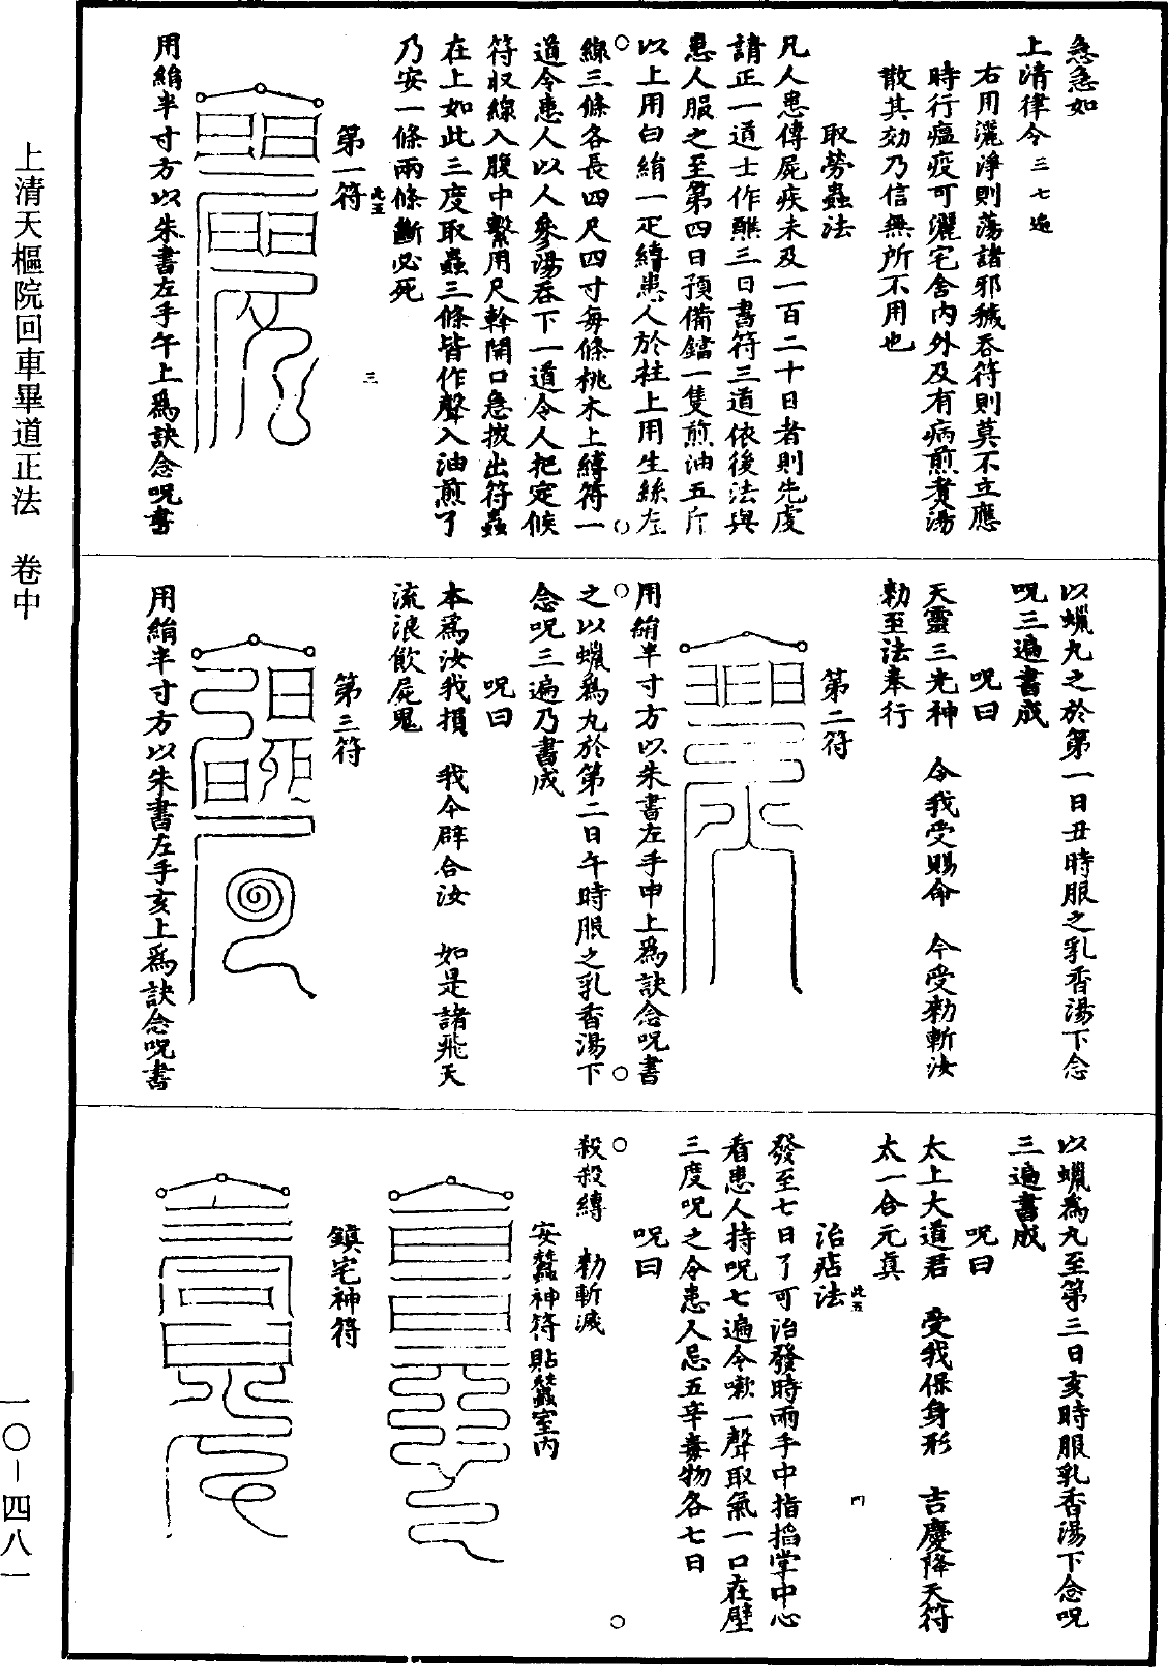 急急如
上清律令三七遍
右用灑淨則蕩諸邪穢吞符則莫不立應
時行瘟疫可灑宅舍內外及有病煎煑湯
散其効乃信無所不用也
取勞蟲法
凡人患傳屍疾未及一百二十日者則先虔
請正一道士作醮三日書符三道依後法與
患人服之至第四日預備鐺一隻煎油五斤
以上用白絹一疋縛患人於柱上用生絲左
線三條各長四尺四寸每條桃木上縛符一
道令患人以人參湯吞下一道令人把定候
符收線入腹中繫用尺幹開口急拔出符蟲
在上如此三度取蟲三條皆作聲入油煎了
乃安一條兩條斷必死
第一符
三
用絹半寸方以朱書左手午上為訣念呪書
以蠟丸之於第一日丑時服之乳香湯下念
呪三遍書成
呪曰
天靈三光神　令我受賜命　今受勑斬汝
勑至法奉行
第二符
用絹半寸方以朱書左手申上為訣念呪書
之以蠟為丸於第二日午時服之乳香湯下
念呪三遍乃書成
呪曰
本為汝我損　我今辟合汝　如是諸飛天
流浪飲屍鬼
第三符
用絹半寸方以朱書左手亥上為訣念呪書
以蠟為丸至第三日亥時服乳香湯下念呪
三遍書成
呪曰
太上大道君　受我保身形　吉慶降天符
太一合元真
治痁法
四
發至七日了可治發時兩手中指掐掌中心
看患人持呪七遍令嗽一聲取氣一口在壁
三度呪之令患人忌五辛毒物各七日
呪曰
殺殺縛　勑斬滅
安蠶神符貼蠶室內
鎮宅神符
上清天樞院回車畢道正法　卷中
一〇－四八一